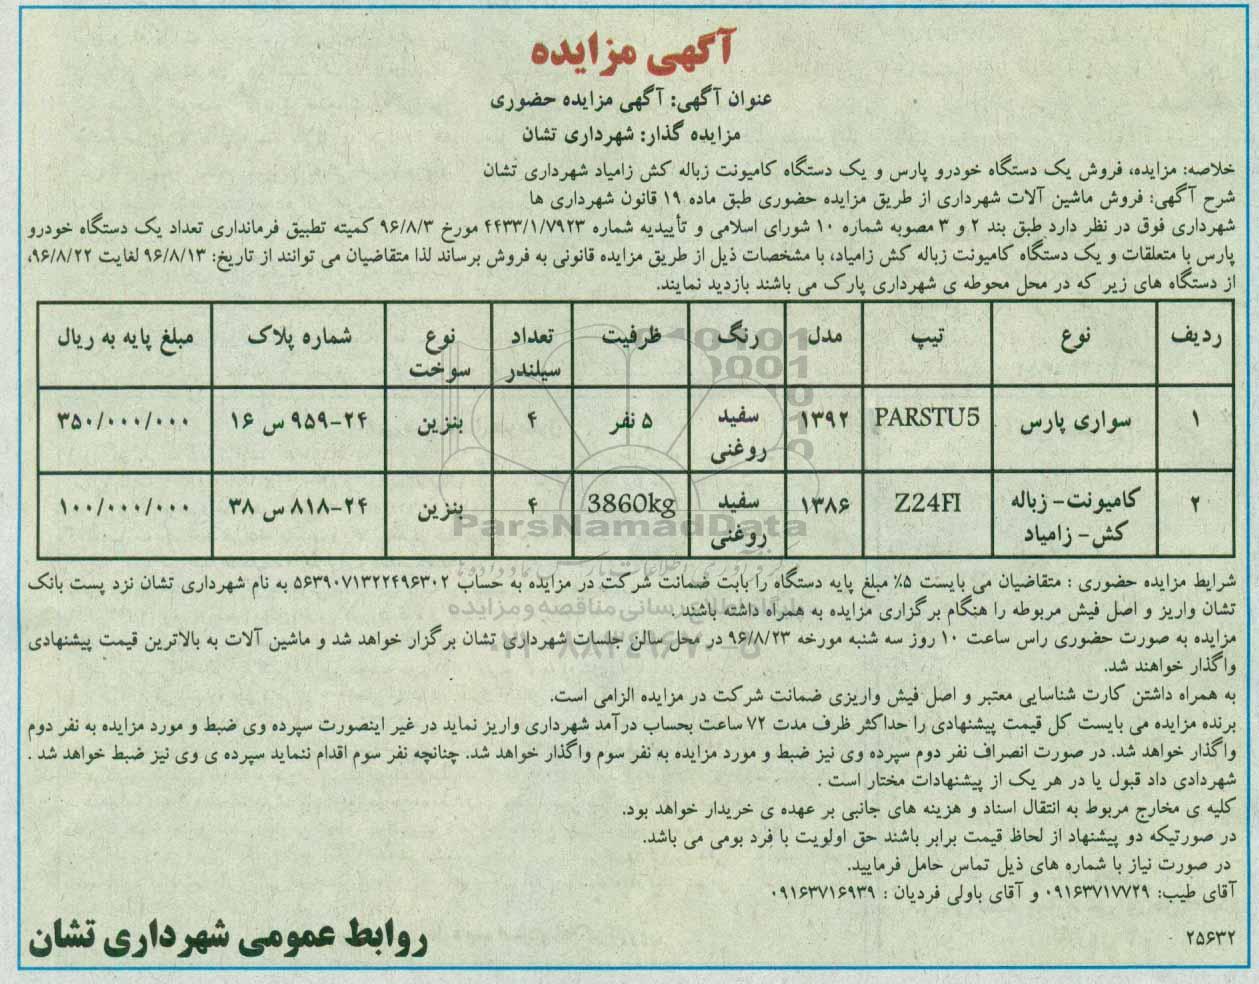 آگهی مزایده
عنوان آگهی: آگهی مزایده حضوری
مزایده گذار: شهرداری تشان
خلاصه: مزایده، فروش یک دستگاه خودرو پارس و یک دستگاه کامیونت زباله کش زامیاد شهرداری تشان
شرح آگهی: فروش ماشین آلات شهرداری از طریق مزایده حضوری طبق ماده ۱۹ قانون شهرداری ها
شهرداری فوق در نظر دارد طبق بند ۲ و ۳ مصوبه شماره ۱۰ شورای اسلامی و تأییدیه شماره ۴۴۳۳/۱/۷۹۲۳ مورخ ۹۶/۸/۳ کمیته تطبیق فرمانداری تعداد یک دستگاه خودرو
پارس با متعلقات و یک دستگاه کامیونت زباله کش زامیاد، با مشخصات ذیل از طریق مزایده قانونی به فروش برساند لذا متقاضیان می توانند از تاریخ: ۹۶/۸/۱۳ لغایت ۹۶/۸/۲۲،
از دستگاه های زیر که در محل محوطه ی شهرداری پارک می باشند بازدید نمایند.
ردیف نوع تیپ مدل رنگ ظرفیت تعداد سیلندر نوع سوخت شماره پلاک مبلغ پایه به ریال
۱ سواری پارس PARSTU5 ۱۳۹۲ سفید روغنی ۵ نفر ۴ بنزین ۲۴-۹۵۹ س ۱۶ ۳۵۰/۰۰۰/۰۰۰
۲ کامیونت- زباله کش- زامیاد Z24FI ۱۳۸۶ سفید روغنی 3860kg ۴ بنزین ۲۴-۸۱۸ س ۳۸ ۱۰۰/۰۰۰/۰۰۰
ParsNamadData
شرایط مزایده حضوری : متقاضیان می بایست ۵٪ مبلغ پایه دستگاه را بابت ضمانت شرکت در مزایده به حساب ۵۶۳۹۰۷۱۳۲۲۴۹۶۳۰۲ به نام شهرداری تشان نزد پست بانک
تشان واریز و اصل فیش مربوطه را هنگام برگزاری مزایده به همراه داشته باشند .
مزایده به صورت حضوری راس ساعت ۱۰ روز سه شنبه مورخه ۹۶/۸/۲۳ در محل سالن جلسات شهرداری تشان برگزار خواهد شد و ماشین آلات به بالاترین قیمت پیشنهادی
واگذار خواهند شد.
به همراه داشتن کارت شناسایی معتبر و اصل فیش واریزی ضمانت شرکت در مزایده الزامی است.
برنده مزایده می بایست کل قیمت پیشنهادی را حداکثر ظرف مدت ۷۲ ساعت بحساب درآمد شهرداری واریز نماید در غیر اینصورت سپرده وی ضبط و مورد مزایده به نفر دوم
واگذار خواهد شد. در صورت انصراف نفر دوم سپرده وی نیز ضبط و مورد مزایده به نفر سوم واگذار خواهد شد. چنانچه نفر سوم اقدام ننماید سپرده ی وی نیز ضبط خواهد شد .
شهردادی داد قبول یا در هر یک از پیشنهادات مختار است .
کلیه ی مخارج مربوط به انتقال اسناد و هزینه های جانبی بر عهده ی خریدار خواهد بود.
در صورتیکه دو پیشنهاد از لحاظ قیمت برابر باشند حق اولویت با فرد بومی می باشد.
در صورت نیاز با شماره های ذیل تماس حامل فرمایید.
آقای طیب: ۰۹۱۶۳۷۱۷۷۲۹ و آقای باولی فردیان : ۰۹۱۶۳۷۱۶۹۳۹
۲۵۶۳۲
روابط عمومی شهرداری تشان